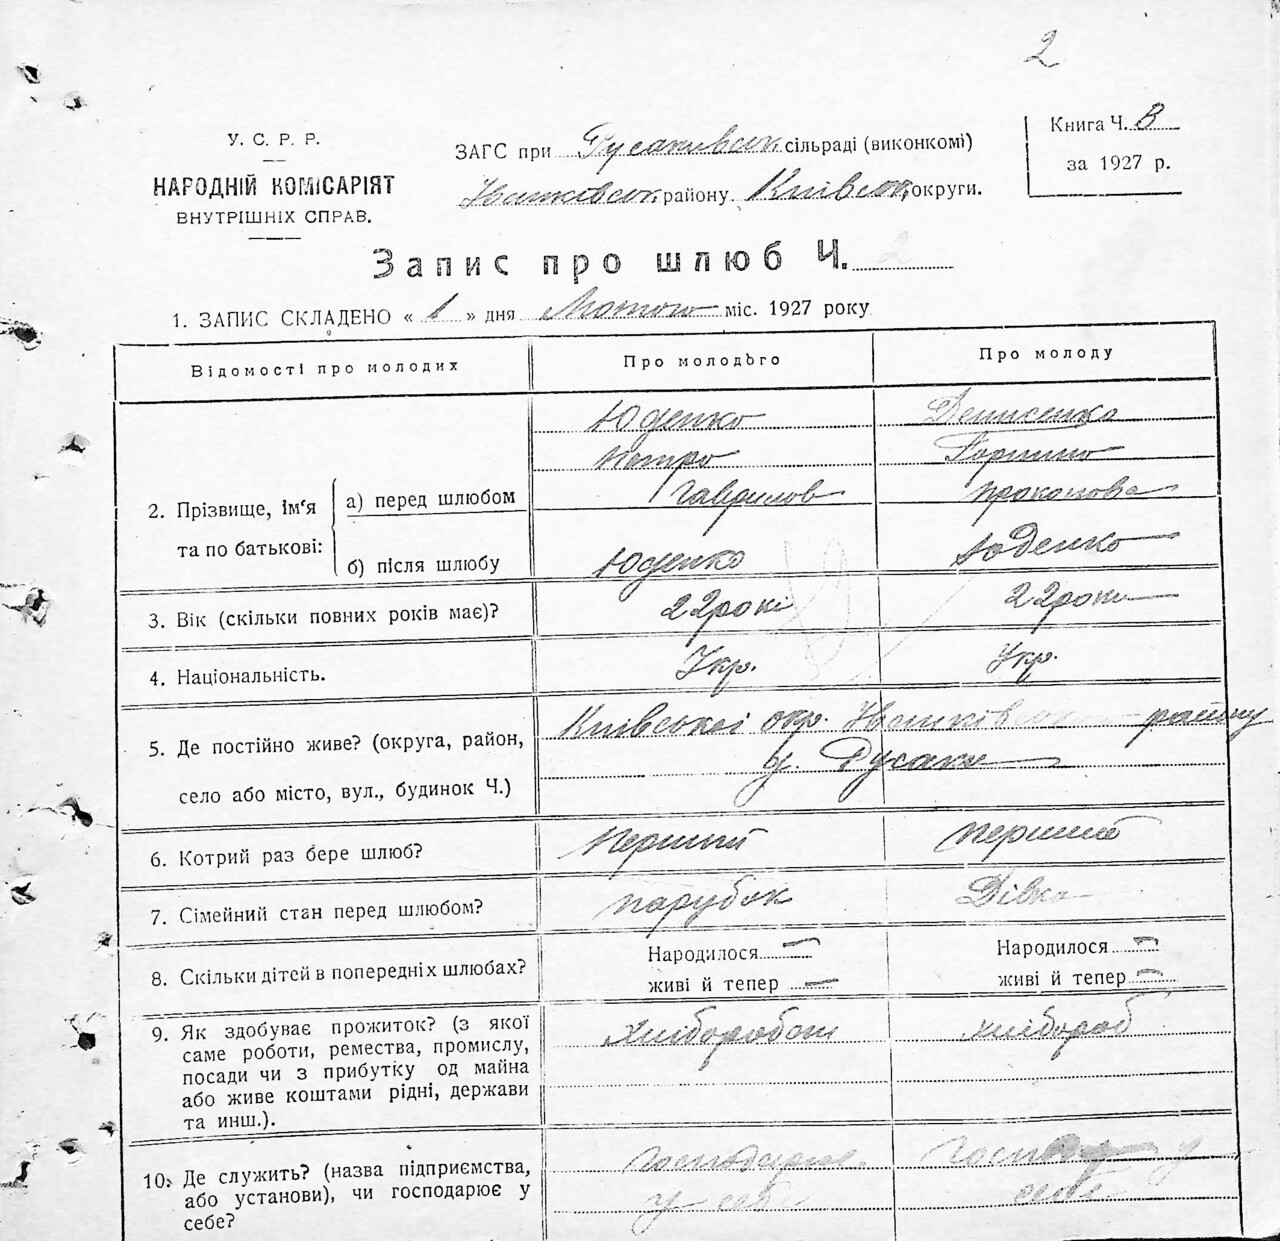 2
У. С. Р. Р.
НАРОДНІЙ КОМІСАРІЯТ
ВНУТРІШНІХ СПРАВ.
ЗАГС при Русаківськ сільраді (виконкомі)
Іванківськ району Київськ округи.
Книга Ч. В
за 1927 р.
Запис про шлюб Ч. 2
1. ЗАПИС СКЛАДЕНО « 1 » дня Лютого міс. 1927 року
Відомості про молодих
Про молодого
Про молоду
2. Прізвище, ім'я та по батькові:
а) перед шлюбом
Юденко
Петро
Гаврилов
Денисенко
Прокопова
б) після шлюбу
Юденко
Юденко
3. Вік (скільки повних років має)?
22 рокі
22 роки
4. Національність.
Укр.
Укр.
5. Де постійно живе? (округа, район,
село або місто, вул., будинок Ч.)
Київської окр. Іванківськ району
с. Русаки
6. Котрий раз бере шлюб?
Перший
перший
7. Сімейний стан перед шлюбом?
парубок
Дівка
8. Скільки дітей в попередніх шлюбах?
Народилося —
живі й тепер —
Народилося —
живі й тепер —
9. Як здобуває прожиток? (з якої
саме роботи, ремества, промислу,
посади чи з прибутку од майна
або живе коштами рідні, держави
та инш.).
хлібороб
10. Де служить? (назва підприємства,
або установи), чи господарює у
себе?
у себе
у
себе